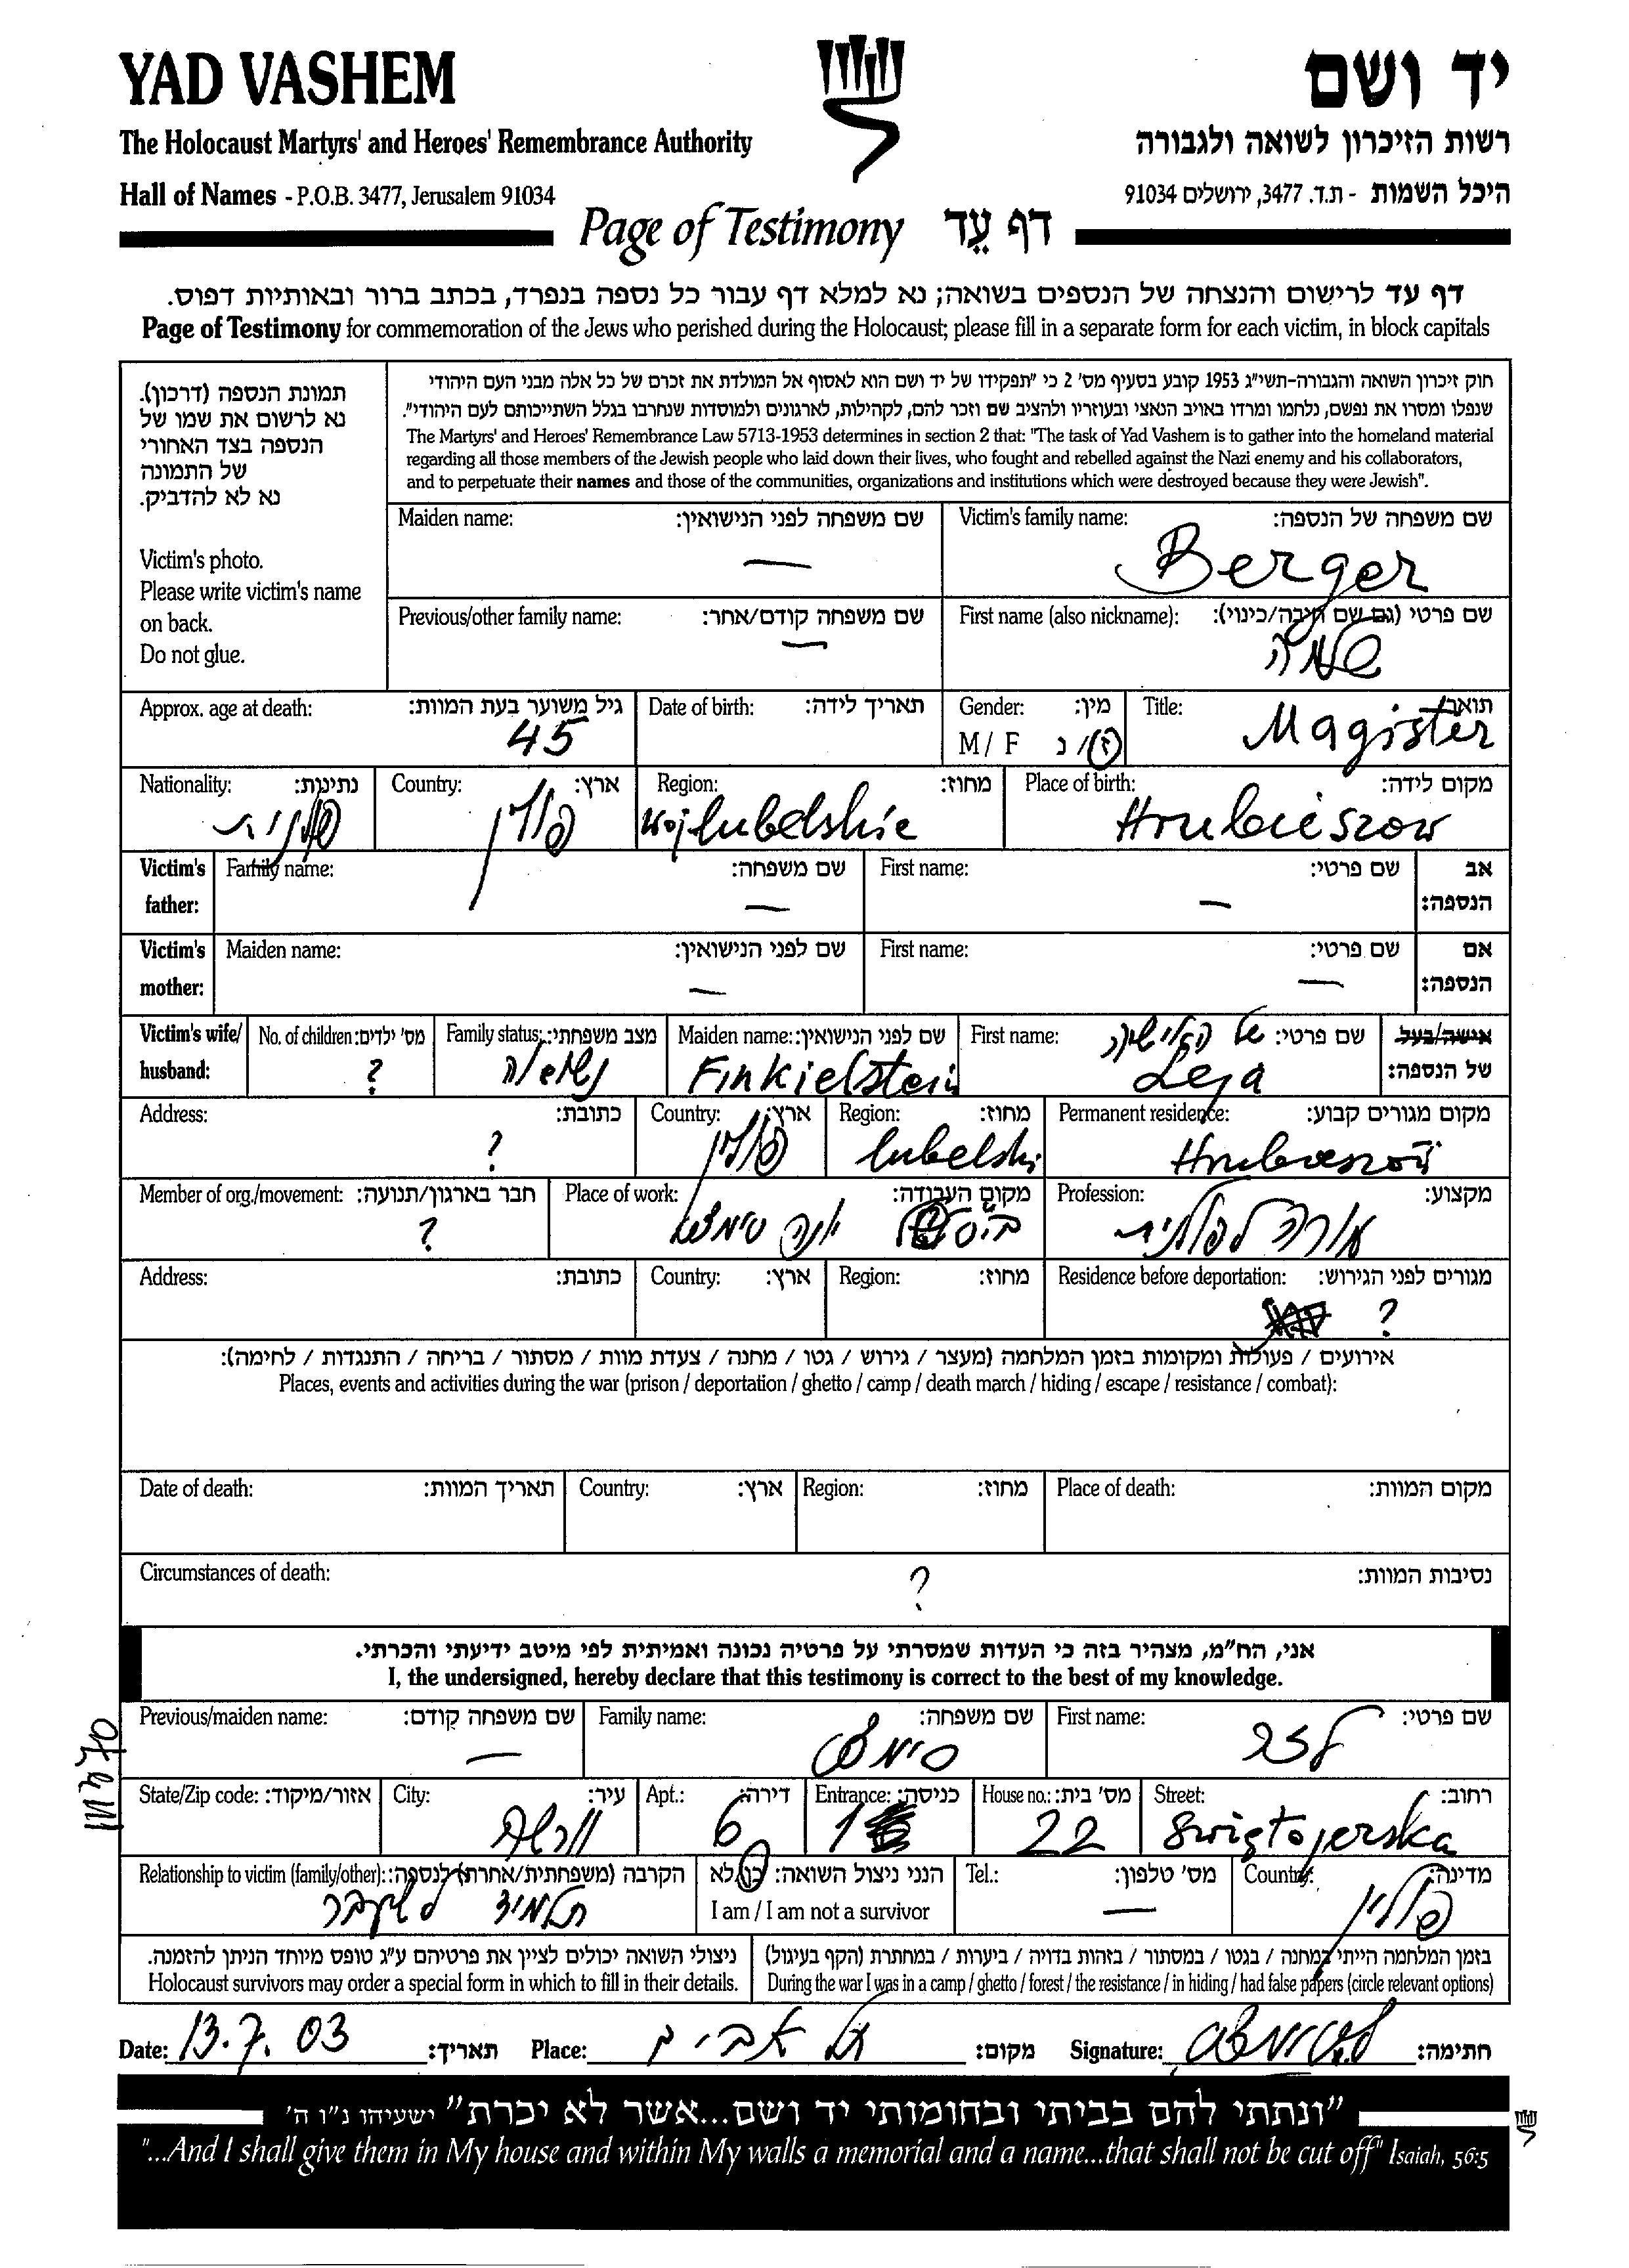 YAD VASHEM
יד ושם
The Holocaust Martyrs' and Heroes' Remembrance Authority
רשות הזיכרון לשואה ולגבורה
Hall of Names - P.O.B. 3477, Jerusalem 91034
היכל השמות - ת.ד. 3477, ירושלים 91034
Page of Testimony דף עֵד
דף עד לרישום והנצחה של הנספים בשואה; נא למלא דף עבור כל נספה בנפרד, בכתב ברור ובאותיות דפוס.
Page of Testimony for commemoration of the Jews who perished during the Holocaust; please fill in a separate form for each victim, in block capitals
תמונת הנספה (דרכון).
נא לרשום את שמו של
הנספה בצד האחורי
של התמונה
נא לא להדביק.
Victim's photo.
Please write victim's name
on back.
Do not glue.
חוק זיכרון השואה והגבורה-תשי"ג 1953 קובע בסעיף מס' 2 כי "תפקידו של יד ושם הוא לאסוף אל המולדת את זכרם של כל אלה מבני העם היהודי
שנפלו ומסרו את נפשם, נלחמו ומרדו באויב הנאצי ובעוזריו ולהציב שם וזכר להם, לקהילות, לארגונים ולמוסדות שנחרבו בגלל השתייכותם לעם היהודי".
The Martyrs' and Heroes' Remembrance Law 5713-1953 determines in section 2 that: "The task of Yad Vashem is to gather into the homeland material
regarding all those members of the Jewish people who laid down their lives, who fought and rebelled against the Nazi enemy and his collaborators,
and to perpetuate their names and those of the communities, organizations and institutions which were destroyed because they were Jewish".
Maiden name: שם משפחה לפני הנישואין: —
Victim's family name: שם משפחה של הנספה: Berger
Previous/other family name: שם משפחה קודם/אחר: —
First name (also nickname): שם פרטי (גם שם חיבה/כינוי):
Approx. age at death: גיל משוער בעת המוות: 45
Date of birth: תאריך לידה:
Gender: מין: M / F ז / נ
Title: תואר: Magister
Nationality: נתינות: פולנית
Country: ארץ: פולין
Region: מחוז: woj lubelskie
Place of birth: מקום לידה: Hrubieszow
Victim's father: Family name: שם משפחה: —
First name: שם פרטי: —
אב הנספה:
Victim's mother: Maiden name: שם לפני הנישואין: —
First name: שם פרטי: —
אם הנספה:
Victim's wife/ husband: No. of children: מס' ילדים: ?
Family status: מצב משפחתי: נשוי/ה
Maiden name: שם לפני הנישואין: Finkielstein
First name: שם פרטי: Leja
אישה/בעל של הנספה:
Address: כתובת: ?
Country: ארץ: פולין
Region: מחוז: lubelski
Permanent residence: מקום מגורים קבוע: Hrubieszow
Member of org./movement: חבר בארגון/תנועה: ?
Place of work: מקום העבודה:
Profession: מקצוע: מורה
Address: כתובת:
Country: ארץ:
Region: מחוז:
Residence before deportation: מגורים לפני הגירוש: ?
אירועים / פעולות ומקומות בזמן המלחמה (מעצר / גירוש / גטו / מחנה / צעדת מוות / מסתור / בריחה / התנגדות / לחימה):
Places, events and activities during the war (prison / deportation / ghetto / camp / death march / hiding / escape / resistance / combat):
Date of death: תאריך המוות:
Country: ארץ:
Region: מחוז:
Place of death: מקום המוות:
Circumstances of death: נסיבות המוות: ?
אני, הח"מ, מצהיר בזה כי העדות שמסרתי על פרטיה נכונה ואמיתית לפי מיטב ידיעתי והכרתי.
I, the undersigned, hereby declare that this testimony is correct to the best of my knowledge.
Previous/maiden name: שם משפחה קודם: —
Family name: שם משפחה:
First name: שם פרטי:
State/Zip code: אזור/מיקוד:
City: עיר: וורשה
Apt.: דירה: 6
Entrance: כניסה: 1
House no.: מס' בית: 22
Street: רחוב: Swiętojerska
Relationship to victim (family/other): הקרבה (משפחתית/אחרת) לנספה: תלמיד לשעבר
הנני ניצול השואה: כן/לא
I am / I am not a survivor
Tel.: מס' טלפון: —
Country: מדינה: פולין
ניצולי השואה יכולים לציין את פרטיהם ע"ג טופס מיוחד הניתן להזמנה.
Holocaust survivors may order a special form in which to fill in their details.
בזמן המלחמה הייתי במחנה / בגטו / במסתור / בזהות בדויה / ביערות / במחתרת (הקף בעיגול)
During the war I was in a camp / ghetto / forest / the resistance / in hiding / had false papers (circle relevant options)
Date: 13.7.03 תאריך: Place: תל אביב מקום: Signature: חתימה:
"ונתתי להם בביתי ובחומותי יד ושם...אשר לא יכרת" ישעיהו נ"ו ה'
"...And I shall give them in My house and within My walls a memorial and a name...that shall not be cut off" Isaiah, 56:5